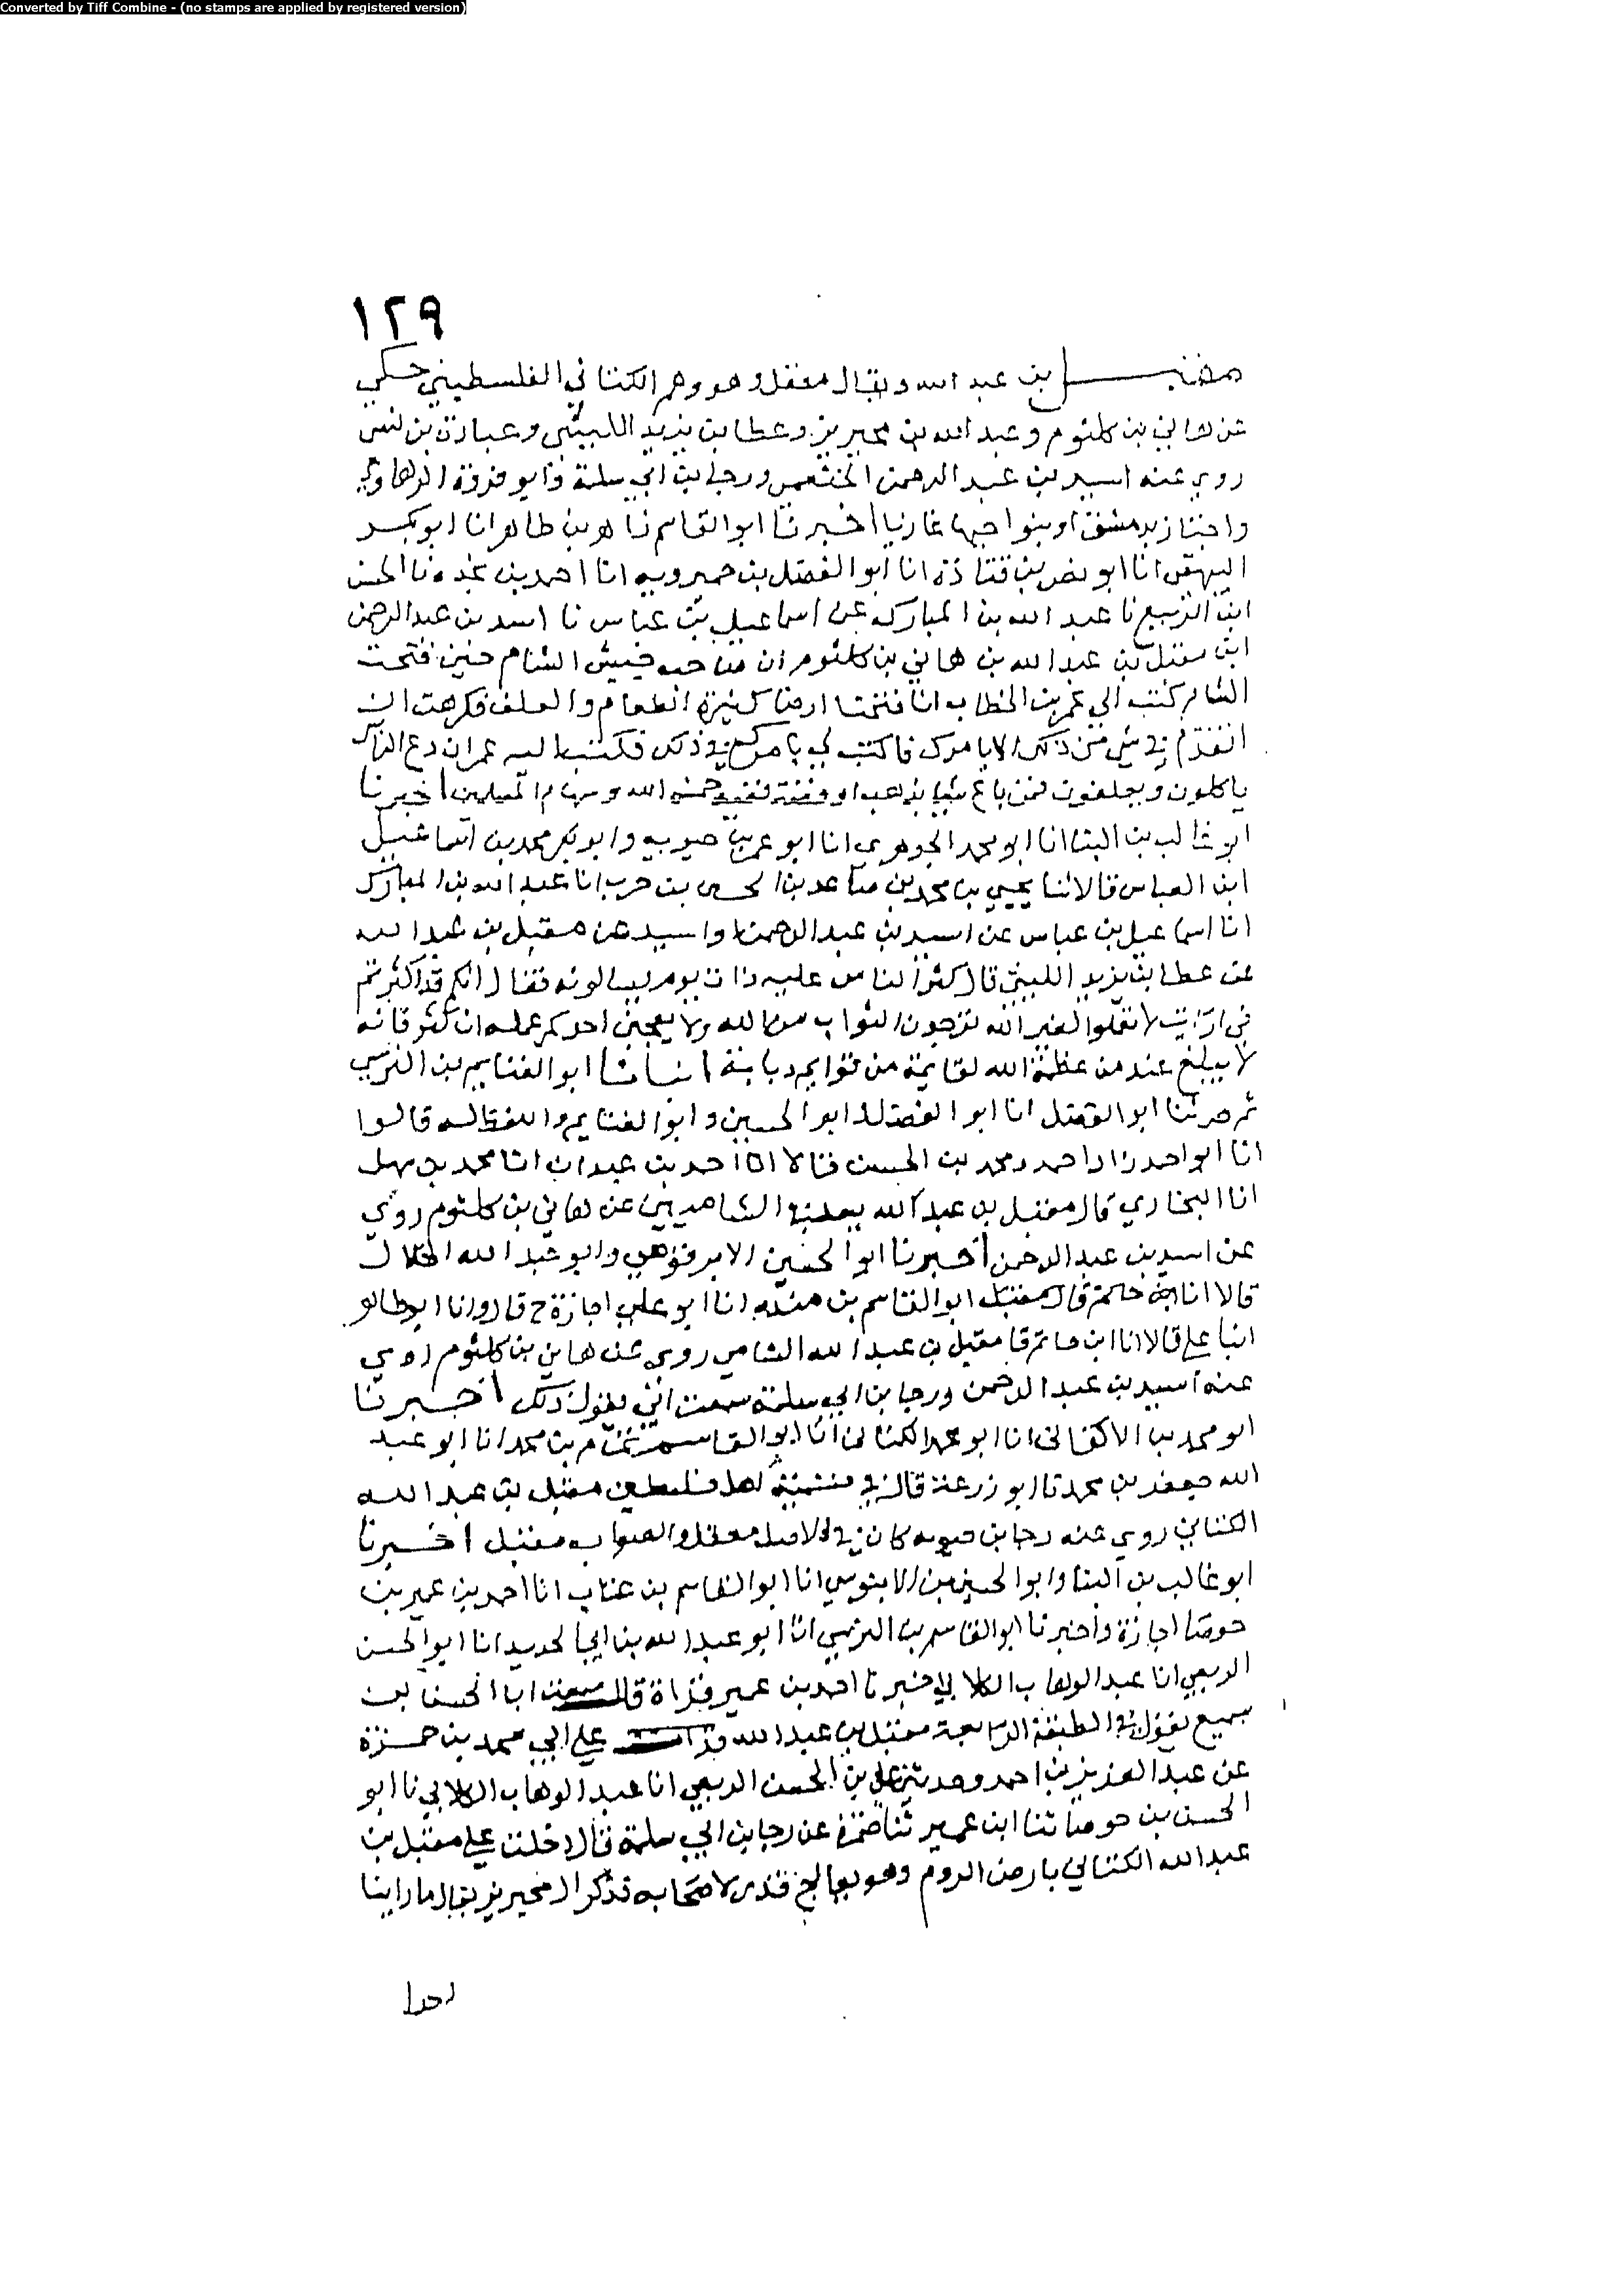 Converted by Tiff Combine - (no stamps are applied by registered version)
١٢٩
مقبل بن عبد الله ويقال معقل وهو وهم الكناني الفلسطيني حكي
عن هاني بن كلثوم وعبد الله بن محيريز وعطا بن يزيد الليثي وعبادة بن نسي
روي عنه اسيد بن عبد الرحمن الخثعمي ورجا بن ابي سلمة وابو فروة الرهاوي
واجتاز بدمشق او بنواحيها غازيا اخبرنا ابو القاسم زاهر بن طاهر انا ابو بكر
البيهقي انا ابو نصر بن قتادة انا ابو الفضل بن خميرويه انا احمد بن نجدة نا الحسن
ابن الربيع نا عبد الله بن المبارك عن اسماعيل بن عياش نا اسد بن عبد الرحمن
ابن مقبل بن عبد الله بن هاني بن كلثوم ان صاحب جيش الشام حين فتحت
الشام كتب الي عمر بن الخطاب انا فتحنا ارضا كثيرة الطعام والعلف فكرهت ان
اتقدم في شي من ذلك الا بامرك فاكتب لي بامرك في ذلك فكتب اليه عمر ان دع الناس
ياكلون ويعلفون فمن باع شيا بذهب او فضة ففيه خمس الله وسهام المسلمين اخبرنا
ابو غالب بن البنا انا ابو محمد الجوهري انا ابو عمر بن حيويه وابو بكر محمد بن اسماعيل
ابن العباس قالا ثنا يحيي بن محمد بن صاعد بن الحسين بن حرب انا عبد الله بن المبارك
انا اسماعيل بن عباس عن اسيد بن عبد الرحمن واسيد عن مقبل بن عبد الله
عن عطا بن يزيد الليثي قال كثر الناس عليه ذات يوم يسالونه فقال انكم قد اكثرتم
في ارايت لا تعملوا لغير الله ترجون الثواب من الله ولا يعجبن احدكم عمله ان كثر فانه
لا يبلغ عند من عظمة الله لقايمة من قوايم ذبابة انبانا ابو الغنايم بن النرسي
ثم حدثنا ابو الفضل انا ابو الفضل وابو الحسين وابو الغنايم واللفظ له قالوا
انا ابو احمد زاد احمد ومحمد بن الحسن قالا انا احمد بن عبدان انا محمد بن سهل
انا البخاري قال مقبل بن عبد الله يعد في الشاميين عن هاني بن كلثوم روي
عن اسيد بن عبد الرحمن اخبرنا ابو الحسين الابرقوهي وابو عبد الله الخلال
قالا انا ابن قال مقبل ابو القاسم بن منده انا ابو علي اجازة ح قال وانا ابو طاهر
انبا علي قالا انا ابن حاتم قا مقبل بن عبد الله الشامي روي عن هاني بن كلثوم روي
عنه اسيد بن عبد الرحمن ورجا بن ابي سلمة سمعت ابي يقول ذلك اخبرنا
ابو محمد بن الاكفاني انا ابو محمد الكتاني انا ابو القاسم تمام بن محمد انا ابو عبد
الله جعفر بن محمد نا ابو زرعة قال في تسمية اهل فلسطين مقبل بن عبد الله
الكناني روي عنه رجا بن حيوة كان في الاصل معقل والصواب مقبل اخبرنا
ابو غالب بن البنا وابو الحسين بن الابنوسي انا ابو القاسم بن عتاب انا احمد بن عمير بن
حوصا اجازة واخبرنا ابو القاسم بن النرسي انا ابو عبد الله بن ابي الحديد انا ابو الحسن
الربعي انا عبد الوهاب الكلابي اخبرنا احمد بن عمير قراة قال سمعت ابا الحسن بن
سميع يقول في الطبقة الرابعة مقبل بن عبد الله قرات علي ابي محمد بن حمزة
عن عبد العزيز بن احمد وحدثني علي بن الحسن الربعي انا عبد الوهاب الكلابي نا ابو
الحسن بن حوصا ثنا ابن عمير ثنا ضمرة عن رجا بن ابي سلمة قال دخلت علي مقبل بن
عبد الله الكناني بارض الروم وهو يعالج قدر لاصحابه تذكر ابن محيريز فقال ما راينا
احدا